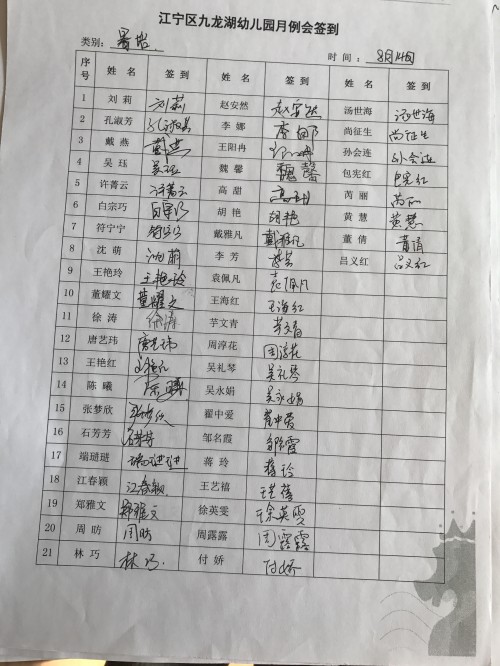 江宁区九龙湖幼儿园月例会签到
类别： 时间：8月14日
序号 姓名 签到 姓名 签到 姓名 签到
1 刘莉 刘莉 赵安然 赵安然 汤世海 汤世海
2 孔淑芳 李娜 李娜 尚征生 尚征生
3 戴燕 戴燕 王阳冉 孙会连 孙会连
4 吴珏 吴珏 魏馨 魏馨 包宪红 包宪红
5 许菁云 许菁云 高甜 高甜 芮丽 芮丽
6 白宗巧 白宗巧 胡艳 胡艳 黄慧 黄慧
7 符宁宁 符宁宁 戴雅凡 戴雅凡 董倩 董倩
8 沈萌 沈萌 李芳 李芳 吕义红 吕义红
9 王艳玲 王艳玲 袁佩凡 袁佩凡
10 董耀文 董耀文 王海红 王海红
11 徐涛 徐涛 芋文青
12 唐艺玮 唐艺玮 周淳花 周淳花
13 王艳红 王艳红 吴礼琴 吴礼琴
14 陈曦 陈曦 吴永娟 吴永娟
15 张梦欣 张梦欣 翟中爱 翟中爱
16 石芳芳 石芳芳 邹名霞 邹名霞
17 端琎琎 端琎琎 蒋玲 蒋玲
18 江春颖 江春颖 王艺禧
19 郑雅文 郑雅文 徐英雯 徐英雯
20 周昉 周昉 周露露 周露露
21 林巧 林巧 付娇 付娇